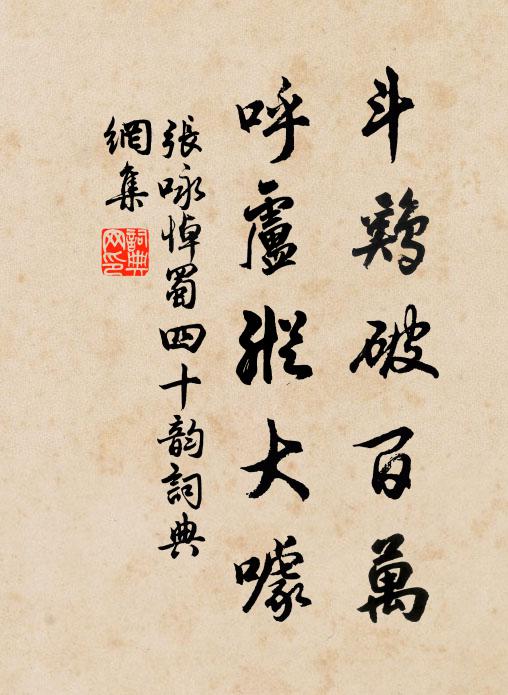 斗鷄破百萬
呼盧縱大噱
張咏悼蜀四十韵詞典
網集
詞典網印